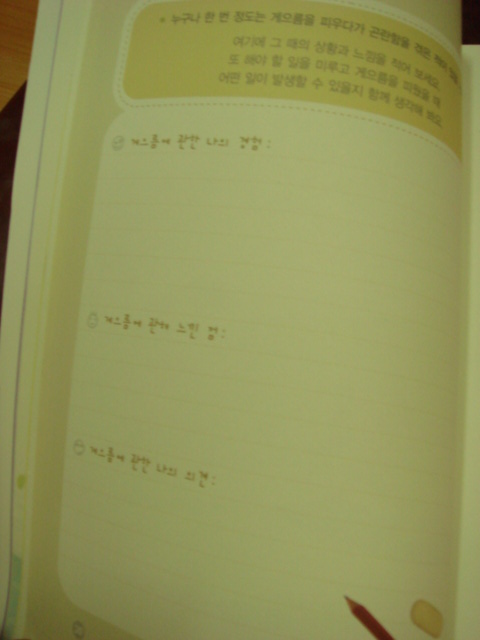 누구나 한 번 정도는 게으름을 피우다가 곤란함을 겪은 적이
여기에 그 때의 상황과 느낌을 적어 보세요.
또 해야 할 일을 미루고 게으름을 피웠을 때
어떤 일이 발생할 수 있을지 함께 생각해 봐요.
주제와 관련 나의 경험:
관련 느낀 점:
관련 나의 의견: